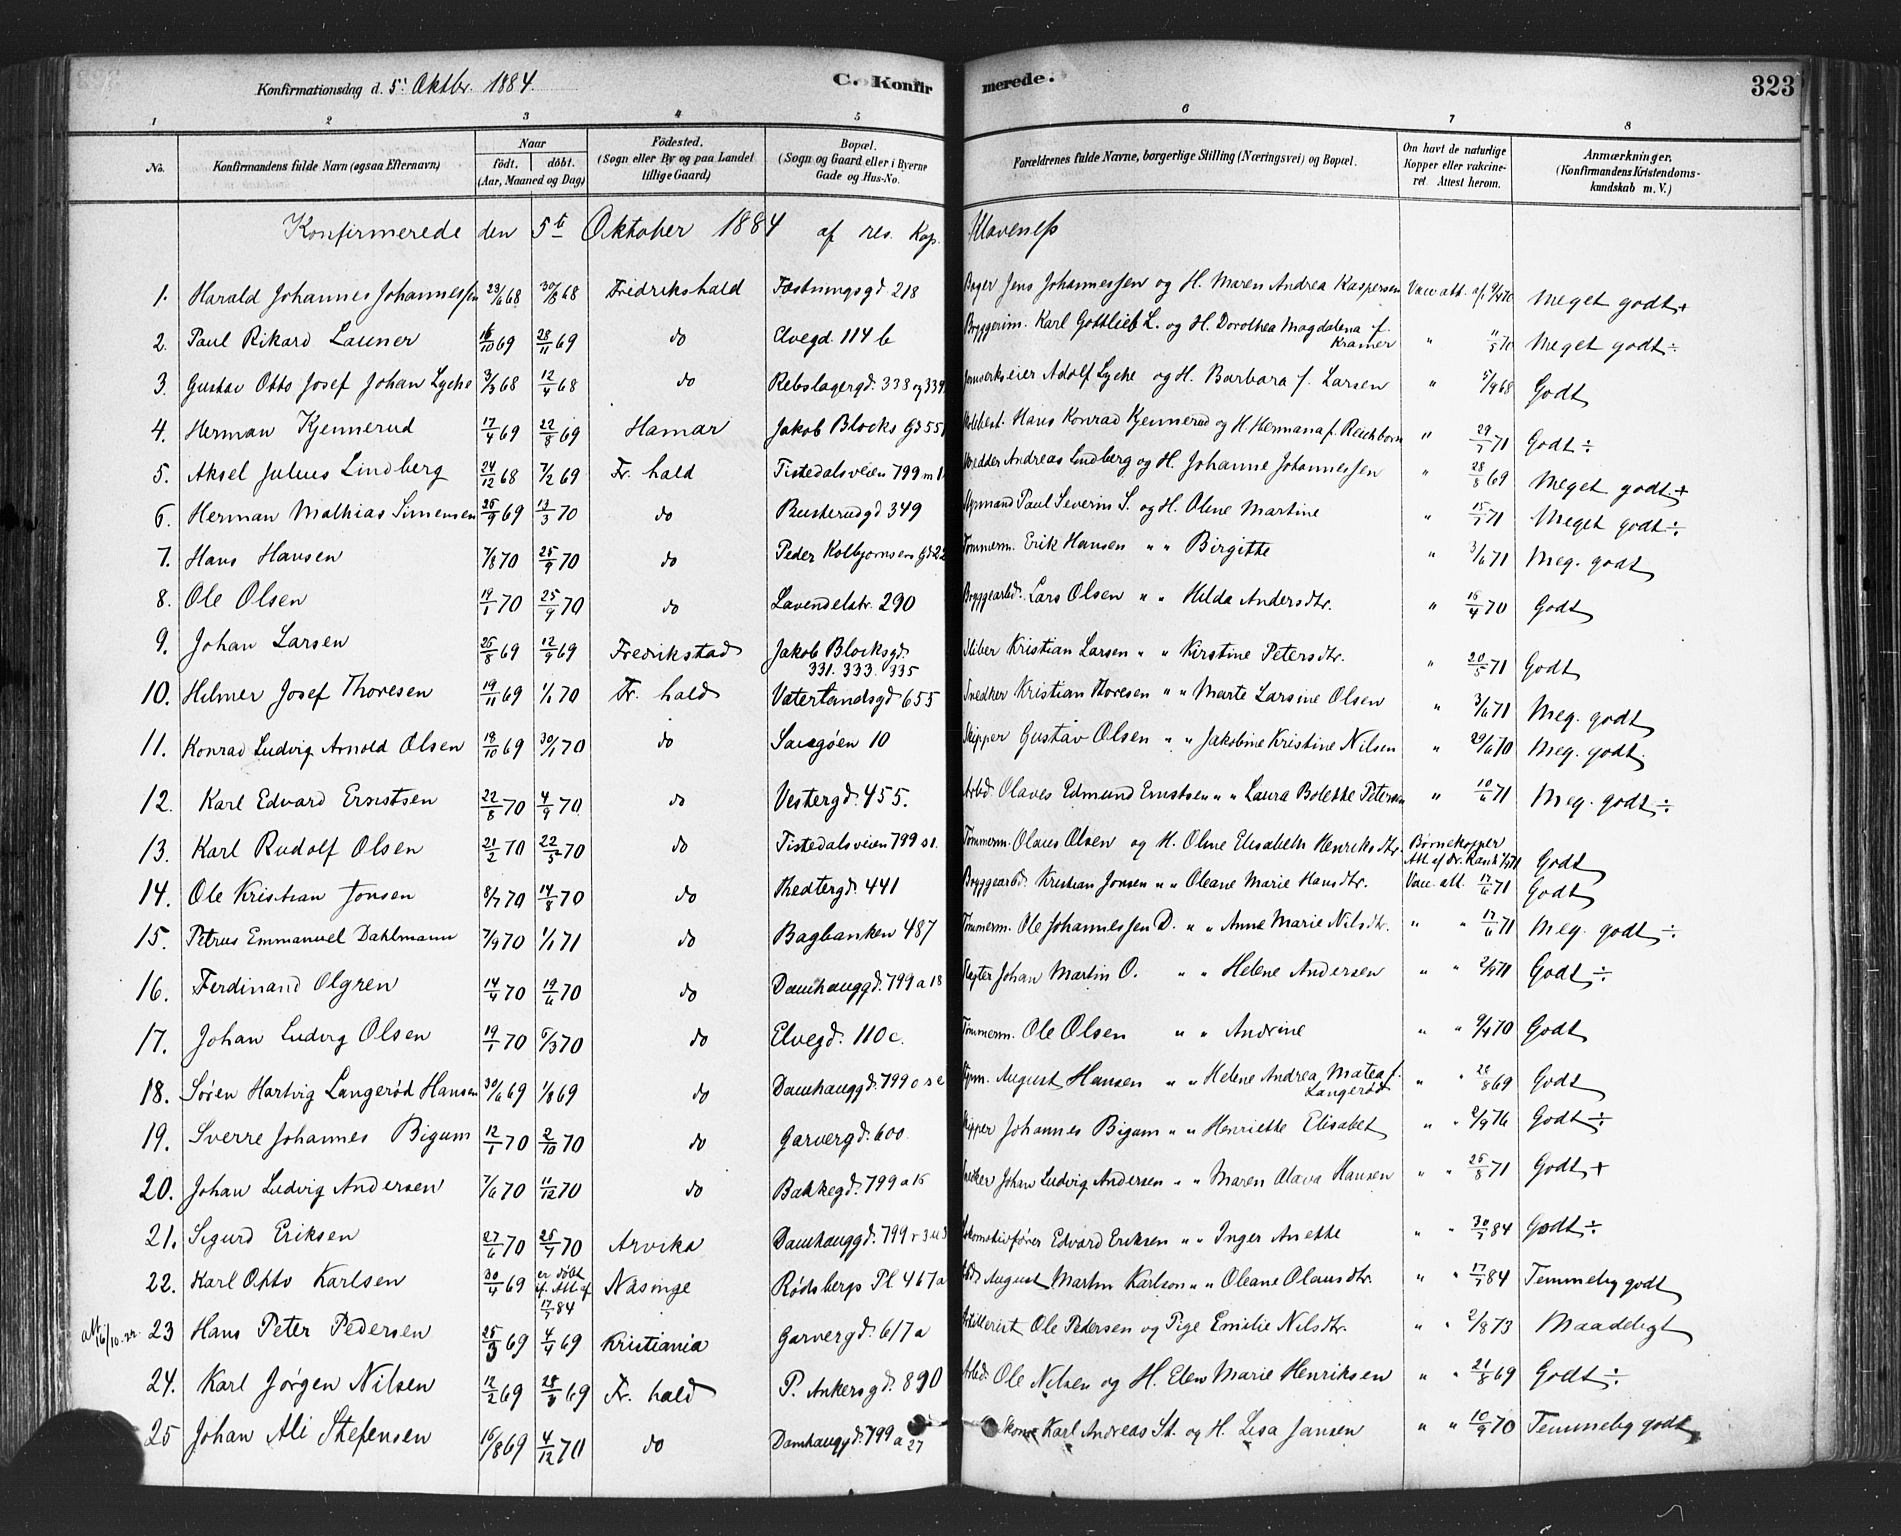 Konfirmationsdag d. 5' Oktbr. 1884.
C. Konfirmerede.
323
1 2 3 4 5 6 7 8
No.
Konfirmandens fulde Navn (ogsaa Efternavn)
Naar
födt. döbt.
(Aar, Maaned og Dag)
Födested.
(Sogn eller By og paa Landet
tillige Gaard)
Bopæl.
(Sogn og Gaard eller i Byerne
Gade og Hus-No.
Forældrenes fulde Navne, borgerlige Stilling (Næringsvei) og Bopæl.
Om havt de naturlige
Kopper eller vakcine-
ret. Attest herom.
Anmærkninger.
(Konfirmandens Kristendoms-
kundskab m. V.)
Konfirmerede den 5te Oktober 1884 af res. Kap. Klaveness
1. Harald Johannes Johannessen 23/6 68 30/8 68 Fredrikshald Fæstningsgd 218 Bager Jens Johannessen og H. Maren Andrea Kaspersen Vacc att. af Meget godt +
2. Paul Rikard Launer 16/10 69 28/11 69 do Elvegd. 114 b Bryggerim. Karl Gottlieb L. og H. Dorothea Magdalena f. Kramer " 11/5 70 Meget godt ÷
3. Gustav Otto Josef Johan Lyche 3/3 68 12/4 68 do Rebslagergd. 338 og 339 Adolf Lyche og H. Barbara f. Larsen " 5/9 68 Godt
4. Herman Kjennerud 17/4 69 22/8 69 Hamar Jakob Blocks Gd 551 Hans Konrad Kjennerud og H. Hermana f. Reichborn " 29/7 71 Godt ÷
5. Aksel Julius Lindberg 24/12 68 7/2 69 Fr. hald Tistedalsveien 799 m Andreas Lindberg og H. Johanne Johannessen " 28/8 69 Meget godt +
6. Herman Mathias Simensen 26/9 69 13/3 70 do Busterudgd 349 Styrmand Paul Severin S. og H. Oline Martine " 15/7 71 Meget godt ÷
7. Hans Hansen 7/8 70 25/9 70 do Peder Kolbjørnsens Gd 22 Tømmerm. Erik Hansen " " Birgitte " 3/6 71 Meg. godt
8. Ole Olsen 19/1 70 25/9 70 do Lavendelstr. 290 Bryggearbd. Lars Olsen " " Hilda Andersdtr. " 16/4 70 Godt
9. Johan Larsen 26/8 69 12/9 69 Fredrikstad Jakob Blocksgd. 331. 333. 335 Sliber Kristian Larsen " " Kirstine Petersdtr. " 20/5 71 Godt
10. Hilmer Josef Thoresen 19/11 69 1/1 70 Fr. hald Vaterlandsgd 655 Snedker Kristian Thoresen " " Marte Larsine Olsen " 3/6 71 Meg. godt
11. Konrad Ludvig Arnold Olsen 18/10 69 30/1 70 do Sauøgøen 10 Skipper Gustav Olsen " " Jakobine Kristine Nilsen " 29/6 70 Meg. godt
12. Karl Edvard Ernstsen 22/8 70 4/9 70 do Vestergd. 455. Arbd. Olaves Edmund Ernstsen " " Laura Bolette Petersen " 10/6 71 Meg. godt ÷
13. Karl Rudolf Olsen 21/2 70 22/5 70 do Tistedalsveien 799 s 1. Tømmerm. Olaus Olsen og H. Oline Elisabeth Henriksdtr. Børnekopper Att. af Dr. Godt
14. Ole Kristian Jonsen 8/7 70 14/8 70 do Theatergd. 441 Bryggearbd. Kristian Jonsen " " Oleane Marie Hansdtr. Vacc. att. 17/6 71 Godt
15. Petrus Emmanuel Dahlmann 7/9 70 1/1 71 do Bagbanken 487 Tømmerm. Ole Johannessen D. " " Anne Marie Nilsdtr. " " 17/6 71 Meg. godt ÷
16. Ferdinand Olgren 14/4 70 19/6 70 do Damhauggd. 799 a 18 Slagter Johan Martin O. " " Helene Andersen " " Godt ÷
17. Johan Ludvig Olsen 19/1 70 6/3 70 do Elvegd. 110 c. Tømmerm. Ole Olsen " " Andrine " " 9/4 70 Godt
18. Søren Hartvig Langerød Hansen 30/6 69 1/8 69 do Damhauggd. 799 Styrm. August Hansen " " Helene Andrea Matea f. Langerød " " 28/8 69 Godt
19. Sverre Johannes Bigum 12/1 70 2/10 70 do Garvergd. 600 Skipper Johannes Bigum " " Henriette Elisabet " " 2/9 76 Godt ÷
20. Johan Ludvig Andersen 7/6 70 11/12 70 do Bakkegd. 799 a 15 Johan Ludvig Andersen " " Maren Olava Hansen " " 26/8 71 Godt +
21. Sigurd Eriksen 27/6 70 25/7 70 Arvika Damhauggd. 799 Lokomotivfører Edvard Eriksen " " Inger Anette " " 30/7 84 Godt ÷
22. Karl Otto Karlsen 30/4 69 er døbt if. Att. af 17/7 84 Näsinge Rødsbergs Pl. 467 a Arbd. August Martin Karlson " " Oleane Olausdtr. " " 17/7 84 Temmelig godt
att. 16/10.22. 23 Hans Peter Pedersen 25/3 69 4/4 69 Kristiania Garvergd. 617 a Artillerist Ole Pedersen og Pige Emilie Nilsdtr. " " 2/8 73 Maadeligt
24. Karl Jørgen Nilsen 12/2 69 28/3 69 Fr. hald P. Ankersgd. 890 Arbd. Ole Nilsen og H. Elen Marie Henriksen " " 21/8 69 Godt ÷
25 Johan Ali Stefensen 16/8 69 4/12 70 do Damhauggd. 799 a 27 Skom. Karl Andreas St. og H. Lisa Jansen " " 10/9 70 Temmelig godt